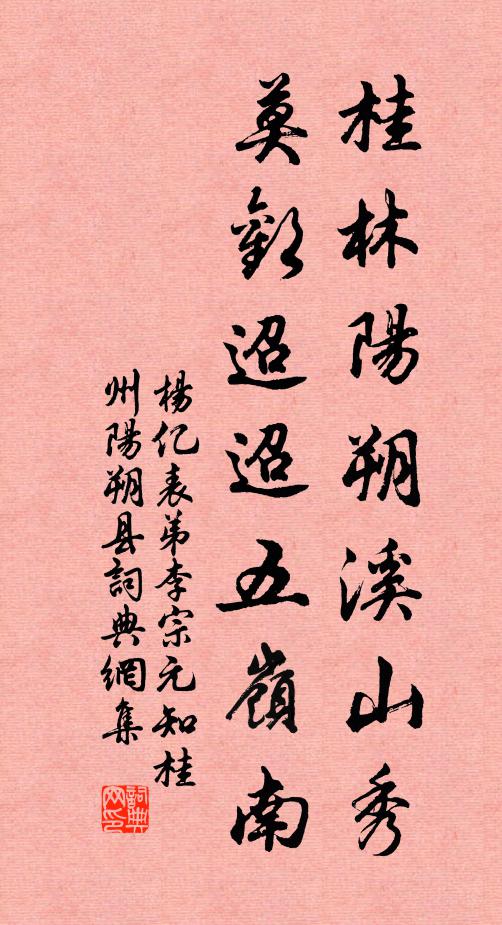 桂林陽朔溪山秀
莫歎迢迢五嶺南
楊亿表弟李宗元知桂
州陽朔县詞典網集
詞典
网印